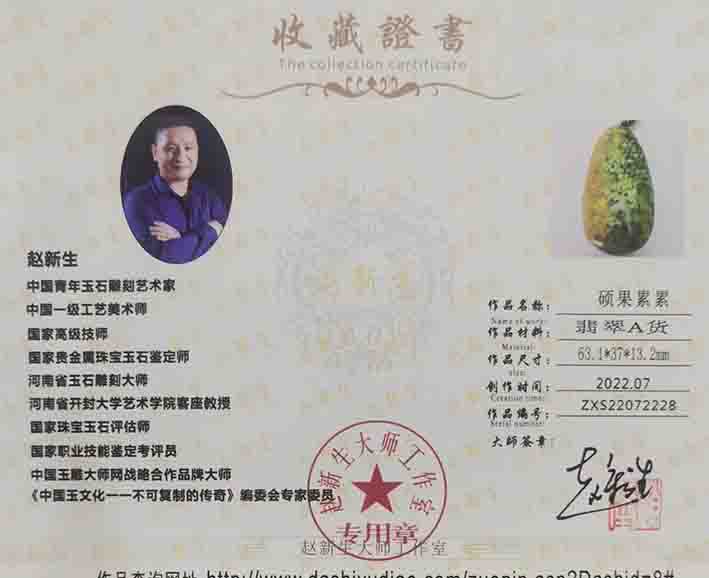 收藏證書
The collection certificate
赵新生
中国青年玉石雕刻艺术家
中国一级工艺美术师
国家高级技师
国家贵金属珠宝玉石鉴定师
河南省玉石雕刻大师
河南省开封大学艺术学院客座教授
国家珠宝玉石评估师
国家职业技能鉴定考评员
中国玉雕大师网战略合作品牌大师
《中国玉文化一一不可复制的传奇》编委会专家委员
作品名称： 硕果累累
Name of work:
作品材料： 翡翠A货
Material:
作品尺寸： 63.1*37*13.2mm
size:
创作时间： 2022.07
Creation time:
作品编号： ZXS22072228
Serial number:
大师签章：
赵新生
赵新生大师工作室
专用章
赵新生大师工作室
作品查询网址